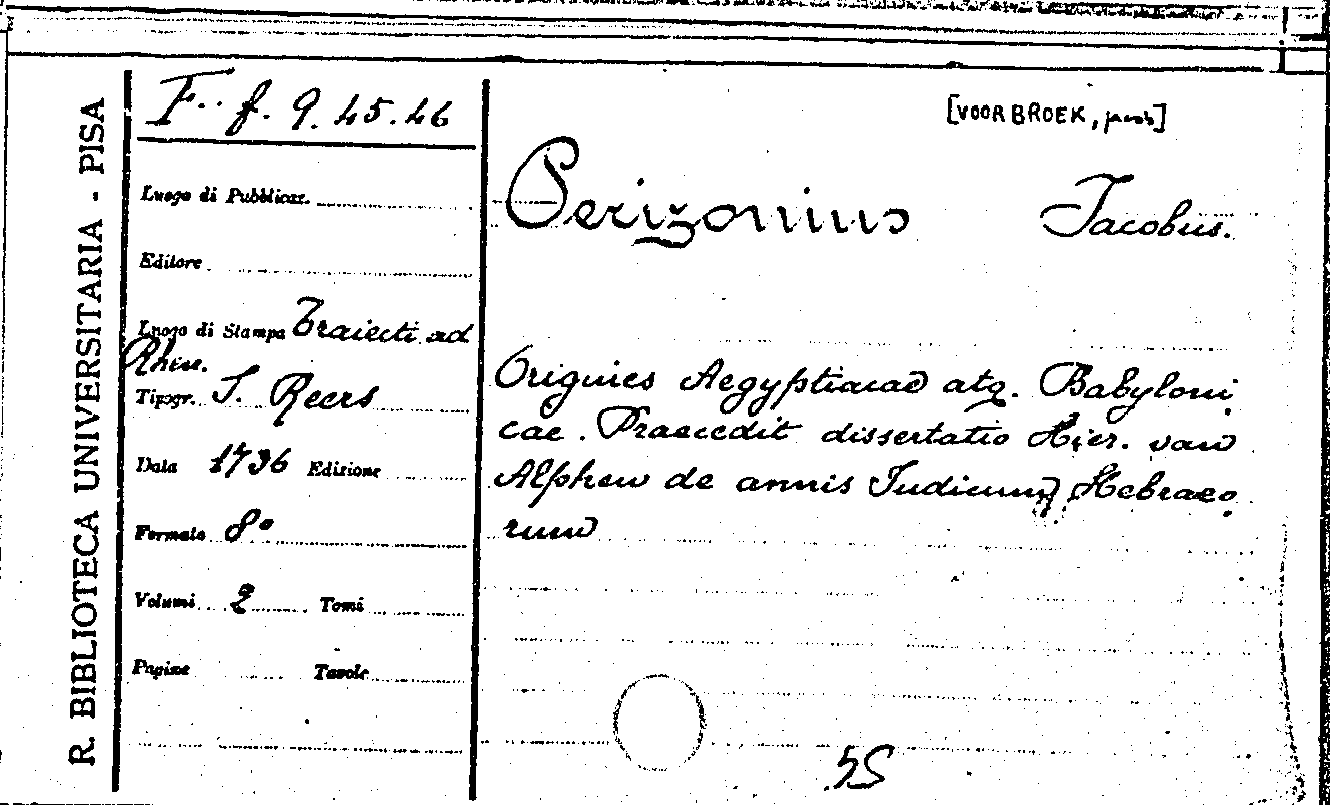 R. BIBLIOTECA UNIVERSITARIA - PISA
F. f. 9. 45.46
[VOORBROEK, Jacob]
Perizonius Jacobus.
Luogo di Pubblicaz.
Editore
Luogo di Stampa Traiecti ad
Rhen.
Tipogr. J. Reers
Data 1736 Edizione
Formato 8°
Volumi 2 Tomi
Pagine Tavole
Origines Aegyptiacae atq. Babyloni
cae. Praecedit dissertatio Hier. van
Alphen de annis Judicum Hebraeo
rum